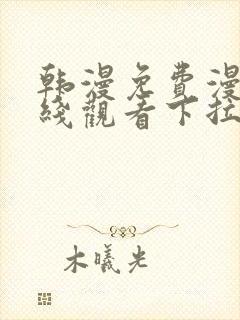 韩漫免費漫
綫觀看下拉
木曦光